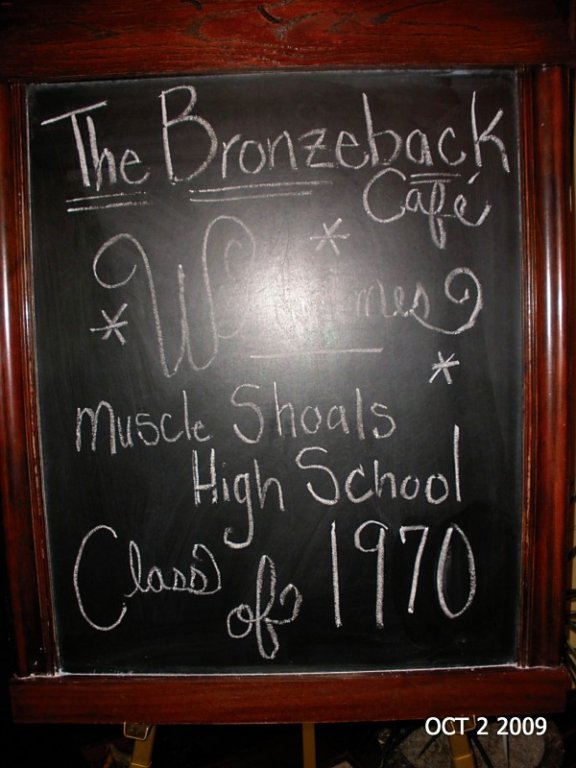 The Bronzeback
Café
Welcomes
Muscle Shoals
High School
Class of 1970
OCT 2 2009